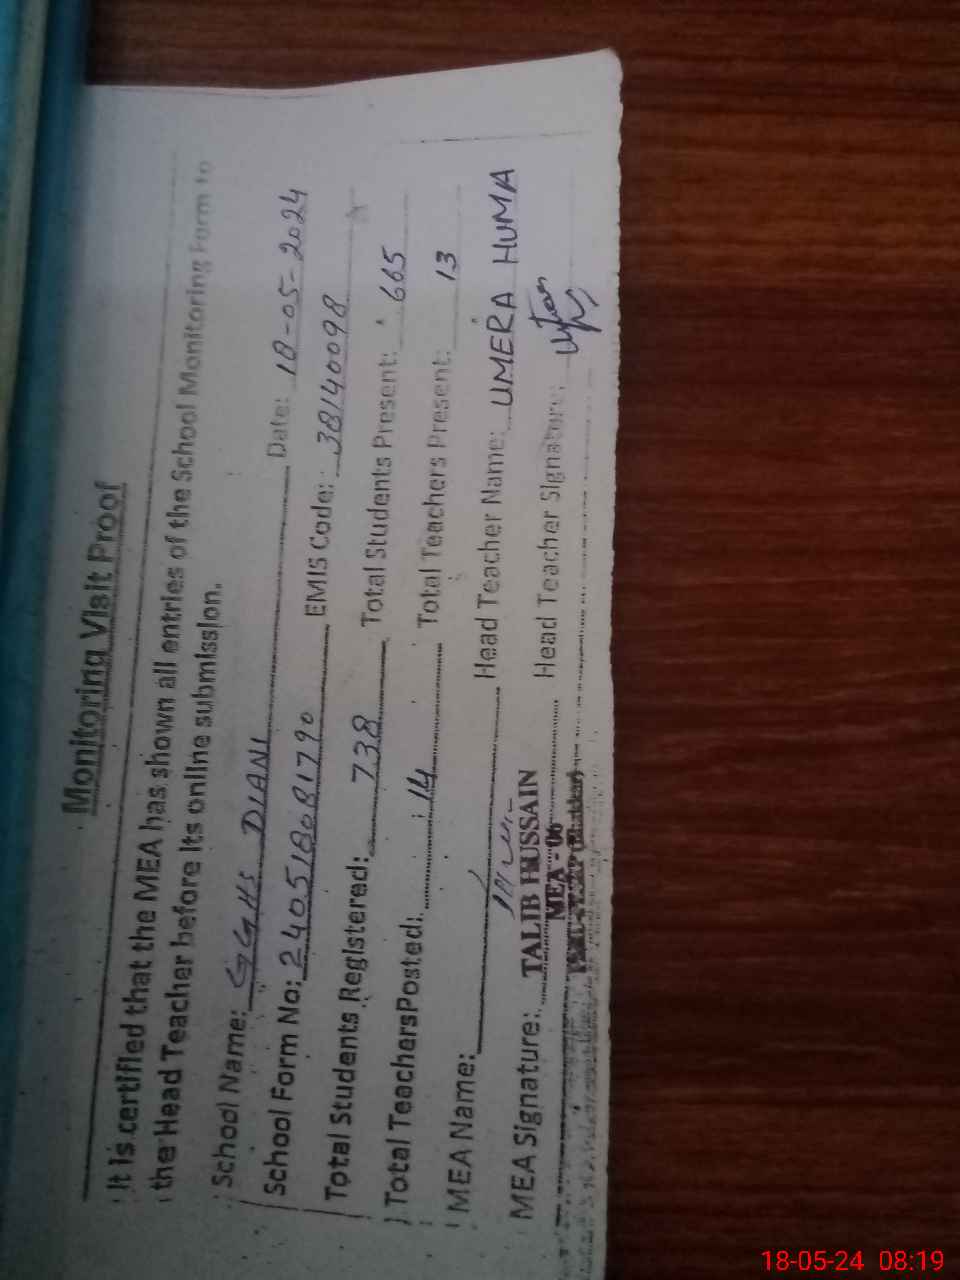 Monitoring Visit Proof
It is certified that the MEA has shown all entries of the School Monitoring Form to
the Head Teacher before its online submission.
School Name: GGHS DIANI Date: 18-05-2024
School Form No: 240518081790 EMIS Code: 38140098
Total Students Registered: 738 Total Students Present: 665
Total Teachers Posted: 14 Total Teachers Present: 13
MEA Name: Head Teacher Name: UMERA HUMA
MEA Signature: Head Teacher Signature:
TALIB HUSSAIN
MEA - 06
18-05-24 08:19